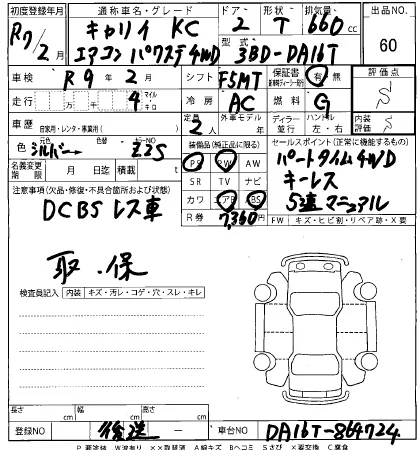 初度登録年月 通称車名・グレード ドア 形状 排気量 出品No
R7/2月 キャリイ KC 2 T 660 cc 60
エアコン パワステ 4WD 型式 3BD-DA16T
車検 R9年2月 シフト F5MT 保証書 有 無 評価点
走行 万 千 4 マイル キロ 冷房 AC 燃料 G
車歴 自家用・レンタ・事業用( ) 定員 2人 外車モデル 年 ディーラー 並行 ハンドル 左・右 内装
色 シルバー 色替 カラーNO ZZS 装備品(純正品に限る) セールスポイント(正常に機能するもの)
名義変更期限 月 日迄 積載 t PS PW AW パートタイム4WD
注意事項(欠品・修復・不具合箇所および状態) SR TV ナビ キーレス
DCBSレス車 カワ エアB ABS 5速マニュアル
R券 7,360円 FW キズ・ヒビ割・リペア跡・X要
取・保
検査員記入 内装 キズ・汚レ・コゲ・穴・スレ・キレ
長さ cm 幅 cm 高さ cm
登録NO 後送 ー 車台No DA16T-864724
P要塗装 W波有り XX取替済 A線キズ Bヘコミ Sさび X要交換 C腐食